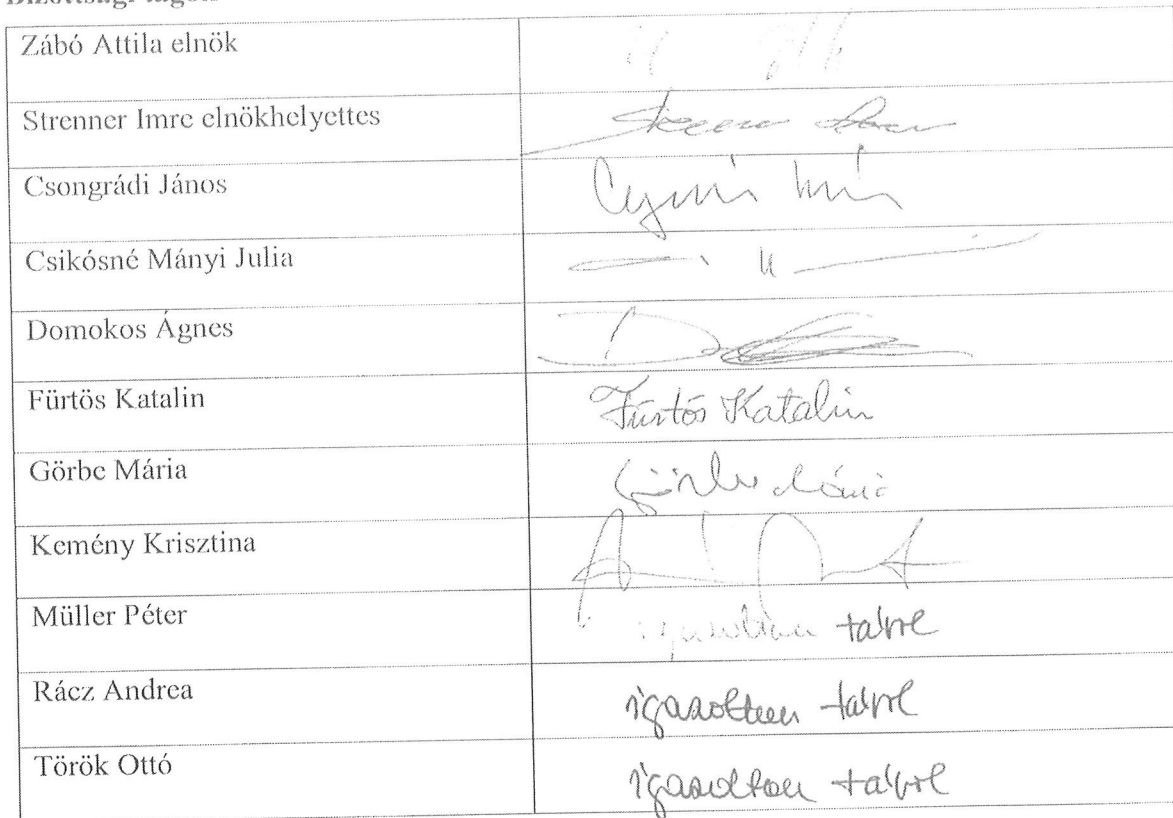 Zábó Attila elnök
Strenner Imre elnökhelyettes
Csongrádi János
Csikósné Mányi Julia
Domokos Ágnes
Fürtös Katalin Fürtös Katalin
Görbe Mária Görbe Mária
Kemény Krisztina
Müller Péter igazoltan távol
Rácz Andrea igazoltan távol
Török Ottó igazoltan távol